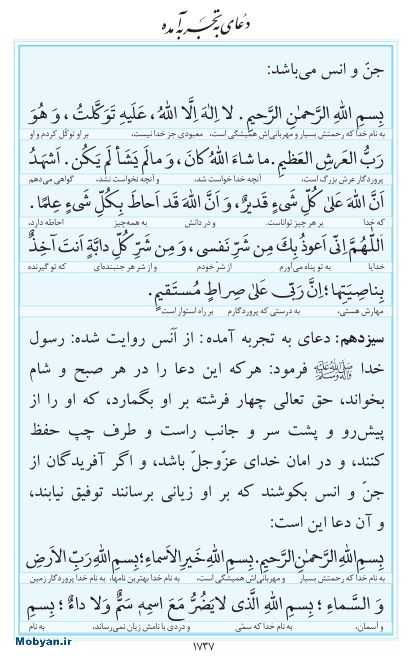 دعای به تجربه آمده
جنّ و انس می‌باشد:
بِسمِ اللهِ الرَّحمٰنِ الرَّحیمِ. لا اِلٰهَ اِلَّا اللهُ، عَلَیهِ تَوَکَّلتُ، وَ هُوَ
به نام خدا که رحمتش بسیار و مهربانی‌اش همیشگی است، معبودی جز خدا نیست، بر او توکّل کردم و او
رَبُّ العَرشِ العَظیمِ. ما شاءَ اللهُ کانَ، وَ مالَم یَشَأ لَم یَکُن. اَشهَدُ
پروردگار عرش بزرگ است، آنچه خدا خواست شد، و آنچه نخواست نشد، گواهی می‌دهم
اَنَّ اللهَ عَلیٰ کُلِّ شَیءٍ قَدیرٌ، وَ اَنَّ اللهَ قَد اَحاطَ بِکُلِّ شَیءٍ عِلمًا.
که خدا بر هر چیز تواناست. و در دانش به همه‌چیز احاطه دارد،
اَللّٰهُمَّ اِنّی اَعوذُ بِكَ مِن شَرِّ نَفسی، وَ مِن شَرِّ کُلِّ دابَّةٍ اَنتَ آخِذٌ
خدایا به تو پناه می‌آورم از شرّ خودم و از شر هر جنبنده‌ای که تو گیرنده
بِناصِیَتِها؛ اِنَّ رَبّی عَلیٰ صِراطٍ مُستَقیمٍ.
مهارش هستی، به درستی که پروردگارم بر راه استوار است
سیزدهم: دعای به تجربه آمده: از اَنَس روایت شده: رسول
خدا ﷺ فرمود: هرکه این دعا را در هر صبح و شام
بخواند، حق تعالی چهار فرشته بر او بگمارد، که او را از
پیش‌رو و پشت سر و جانب راست و طرف چپ حفظ
کنند، و در امان خدای عزّوجلّ باشد، و اگر آفریدگان از
جنّ و انس بکوشند که بر او زیانی برسانند توفیق نیابند،
و آن دعا این است:
بِسمِ اللهِ الرَّحمٰنِ الرَّحیمِ. بِسمِ اللهِ خَیرِ الاَسماءِ؛ بِسمِ اللهِ رَبِّ الاَرضِ
به نام خدا که رحمتش بسیار و مهربانی‌اش همیشگی است، به نام خدا بهترین نامها، به نام خدا پروردگار زمین
وَ السَّماءِ؛ بِسمِ اللهِ الَّذی لا یَضُرُّ مَعَ اسمِهِ سَمٌّ وَلا داءٌ؛ بِسمِ
و آسمان، به نام خدا که سمّی و دردی با نامش زیان نمی‌رساند، به نام
۱۷۳۷
Mobyan.ir